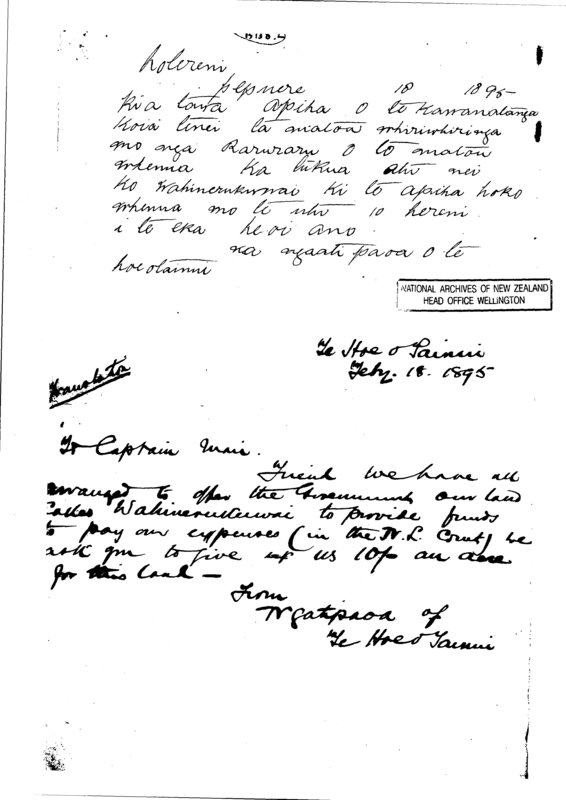 hotereni
pepuere 18 1895-
Kia tawa apiha O te Kawanatanga
Koia tenei ta matoa whiriwhiringa
mo nga Raruraru O to matou
whenua Ka tukua atu nei
Ko Wahinerukuwai Ki te apiha hoko
whenua mo te utu 10 hereni
i te eka heoi ano
na ngaati paoa O te
hoeotainui
NATIONAL ARCHIVES OF NEW ZEALAND
HEAD OFFICE WELLINGTON
Te Hoe o Tainui
Feby. 18. 1895
Translation
To Captain Mair.
Friend We have all
arranged to offer the Government our land
called Wahinerukuwai to provide funds
to pay our expenses (in the N. L. Court) We
ask you to give us 10/- an acre
for this land -
From
Ngatipaoa of
Te Hoe o Tainui